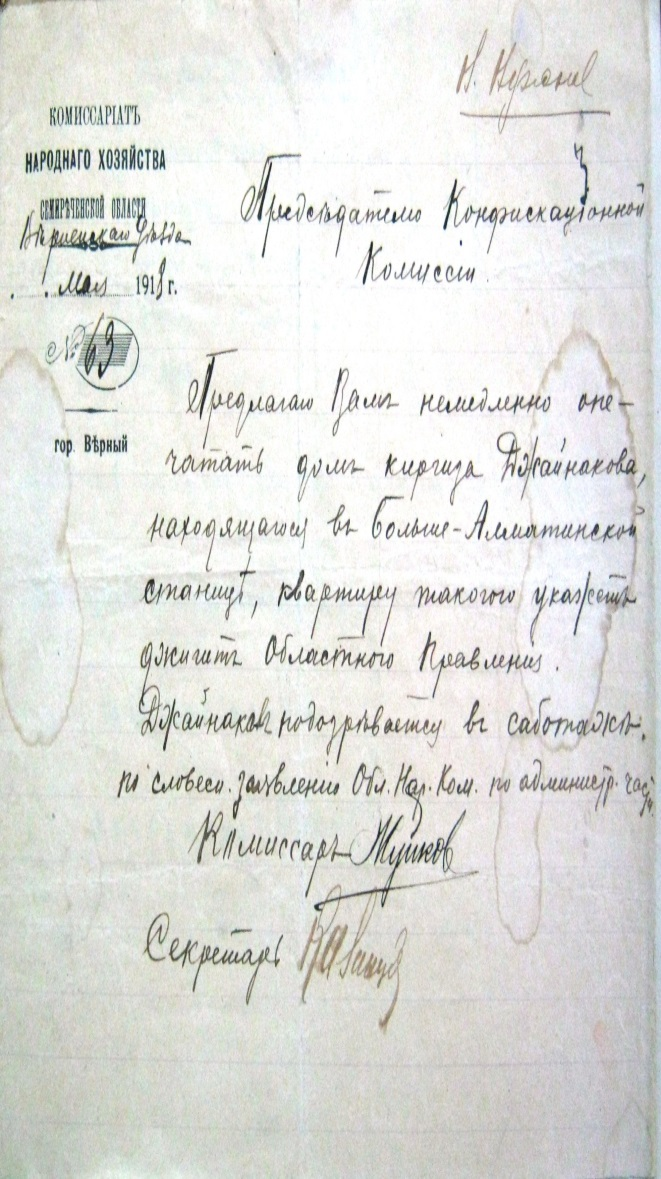 КОМИССАРІАТЪ
НАРОДНАГО ХОЗЯЙСТВА
СЕМИРѢЧЕНСКОЙ ОБЛАСТИ
Вѣрненскаго Уѣзда
Мая 1918 г.
№ 63
гор. Вѣрный
Предсѣдателю Конфискаціонной
Комиссіи.
Предлагаю Вамъ немедленно опе-
чатать домъ киргиза Джайнакова,
находящагося въ Больше-Алматинской
станицѣ, квартиру такогого укажетъ
джигитъ Областного Правленія.
Джайнаковъ подозрѣвается въ саботажѣ.
по словесн. заявленію Обл. Нар. Ком. по администр. части
Комиссаръ
Секретарь